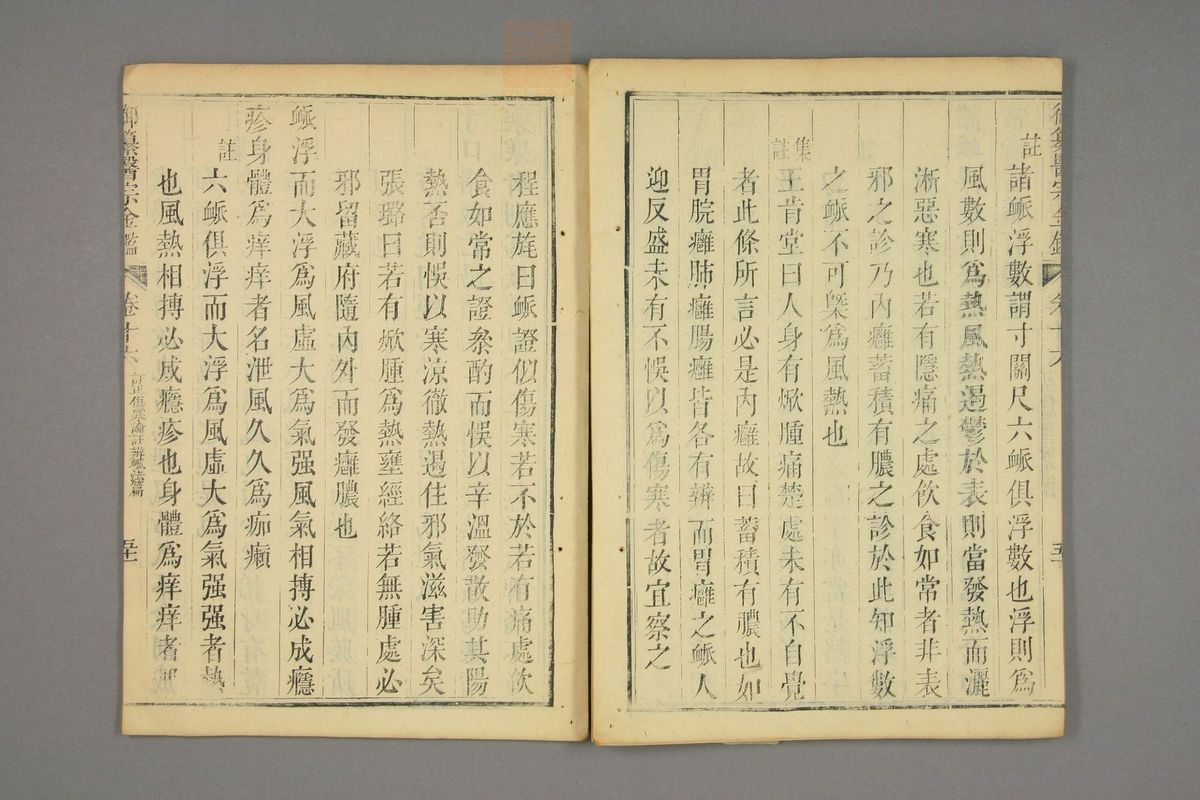 御纂醫宗金鑑 卷十六 五十
註
諸䘑浮數謂寸關尺六䘑俱浮數也浮則爲
風數則爲熱風熱遏鬱於表則當發熱而灑
淅惡寒也若有隱痛之處飲食如常者非表
邪之診乃內癰蓄積有膿之診於此知浮數
之䘑不可槩爲風熱也
集註
王肯堂曰人身有焮腫痛楚處未有不自覺
者此條所言必是內癰故曰蓄積有膿也如
胃脘癰肺癰腸癰皆各有辨而胃癰之䘑人
迎反盛未有不悞以爲傷寒者故宜察之
程應旄曰䘑證似傷寒若不於若有痛處飲
食如常之證叅酌而悞以辛溫發散助其陽
熱否則悞以寒涼徹熱遏住邪氣滋害深矣
張璐曰若有焮腫爲熱壅經絡若無腫處必
邪留藏府隨內外而發癰膿也
䘑浮而大浮爲風虛大爲氣强風氣相搏必成癮
疹身體爲痒痒者名泄風久久爲痂癩
註
六䘑俱浮而大浮爲風虛大爲氣强强者熱
也風熱相搏必成癮疹也身體爲痒痒者
御纂醫宗金鑑 卷十六 訂正傷寒論註辨䘑法篇